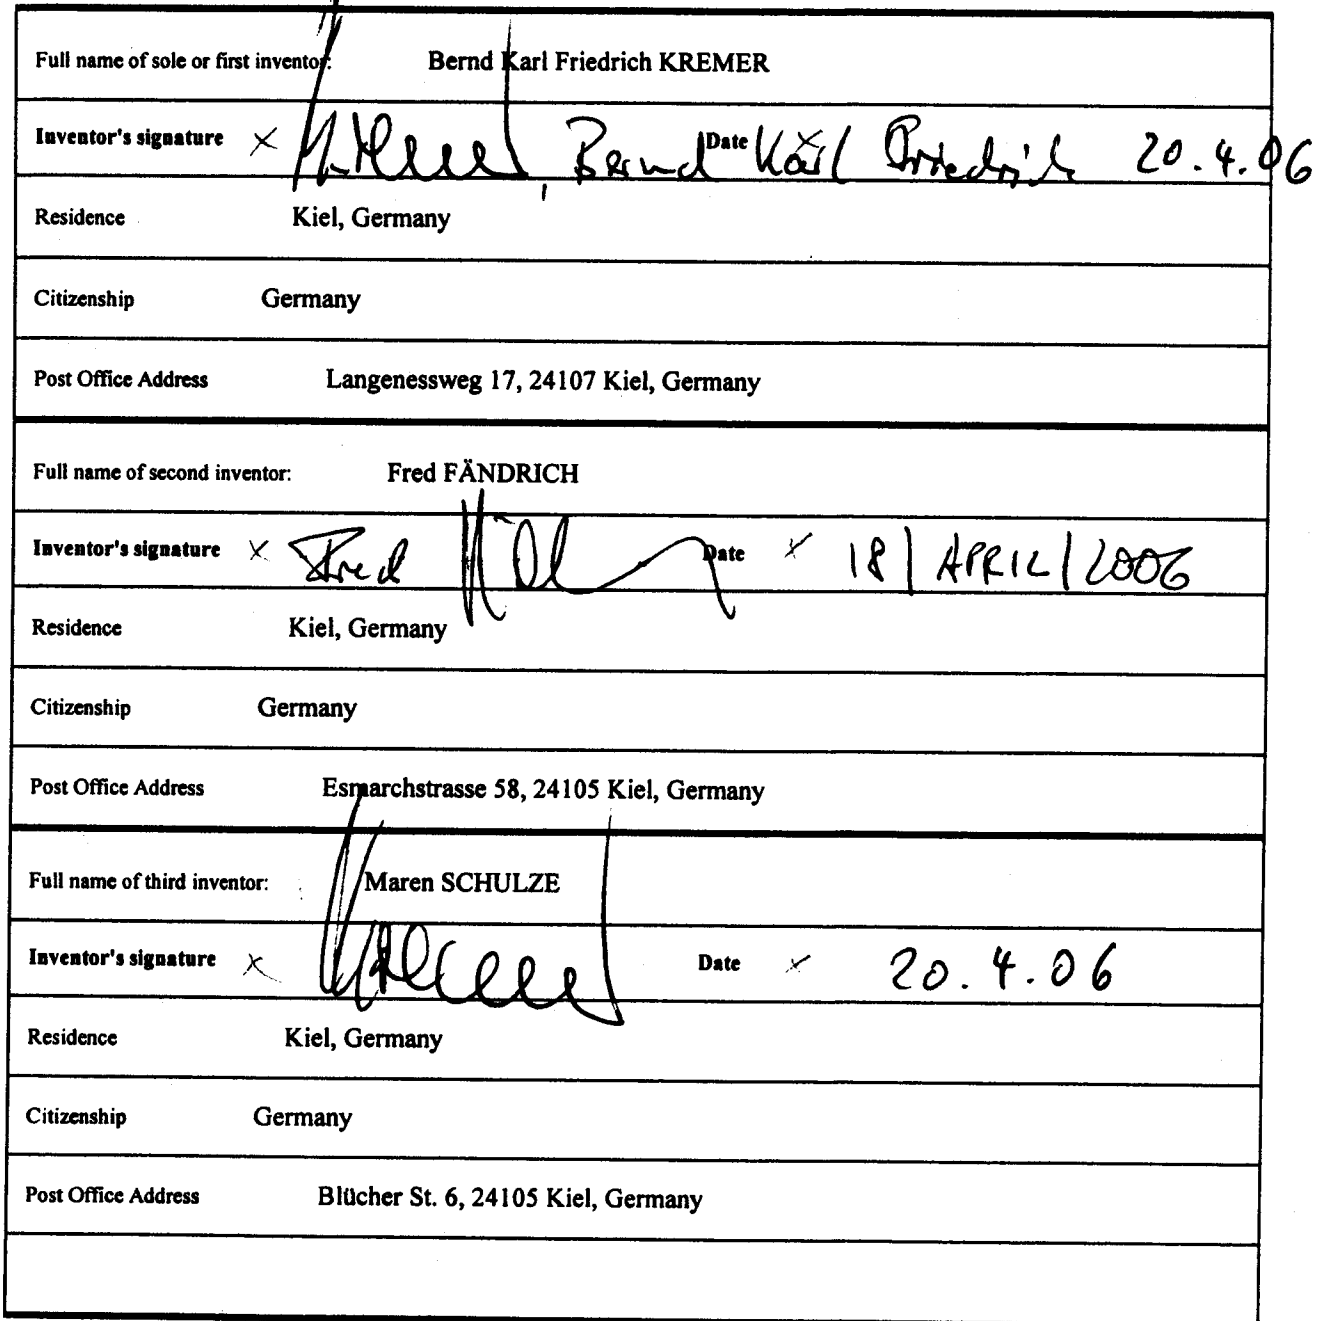 Full name of sole or first inventor: Bernd Karl Friedrich KREMER
Inventor's signature × Bernd Karl Friedrich Date × 20.4.06
Residence Kiel, Germany
Citizenship Germany
Post Office Address Langenessweg 17, 24107 Kiel, Germany
Full name of second inventor: Fred FÄNDRICH
Inventor's signature × Fred Date × 18/APRIL/2006
Residence Kiel, Germany
Citizenship Germany
Post Office Address Esmarchstrasse 58, 24105 Kiel, Germany
Full name of third inventor: Maren SCHULZE
Inventor's signature × Date × 20.4.06
Residence Kiel, Germany
Citizenship Germany
Post Office Address Blücher St. 6, 24105 Kiel, Germany